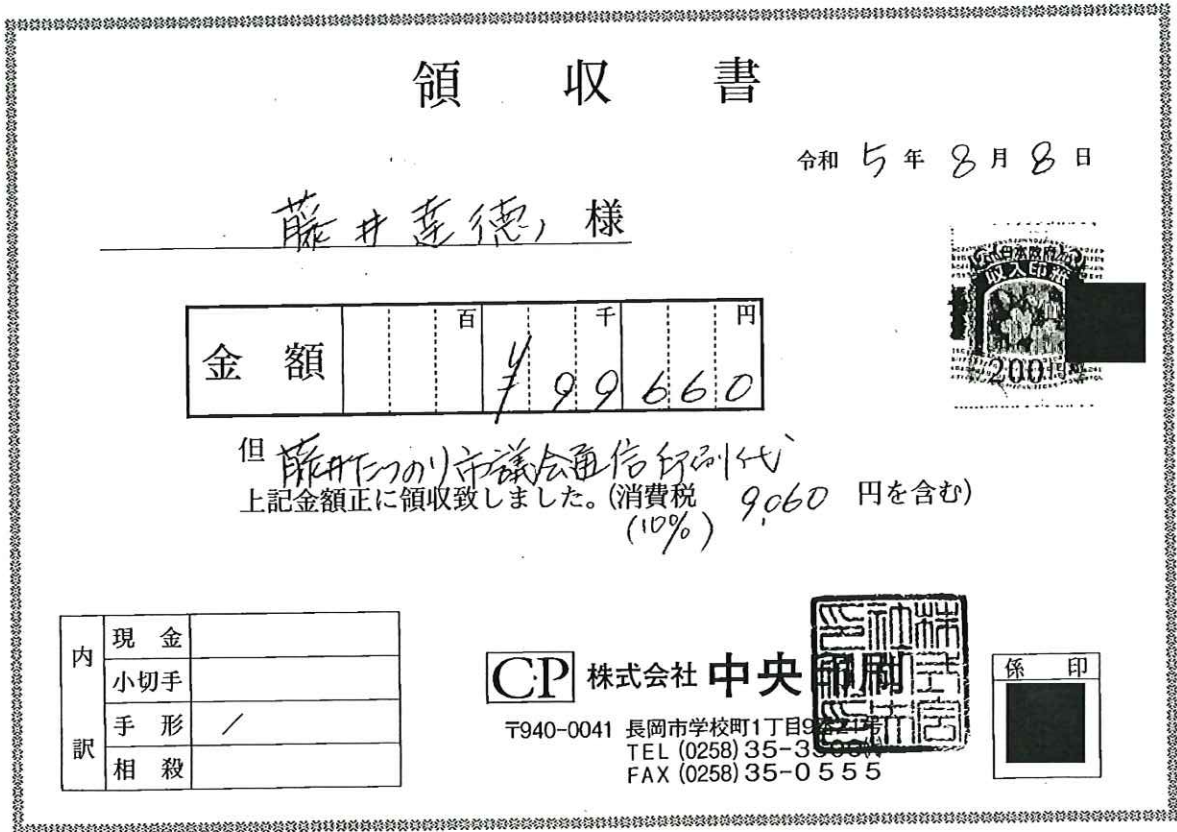 領収書
令和 5 年 8 月 8 日
藤井達徳 様
日本政府
収入印紙
200円
金額 百 千 円
¥99660
但 藤井たつのり市議会通信印刷代
上記金額正に領収致しました。(消費税 9,060 円を含む)
(10%)
内訳
現金
小切手
手形 /
相殺
CP 株式会社 中央印刷
〒940-0041 長岡市学校町1丁目9番21号
TEL (0258) 35-3
FAX (0258) 35-0555
係印